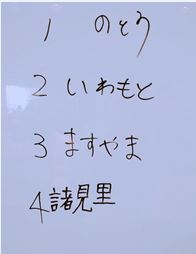 1 のとう
2 いわもと
3 ますやま
4 諸見里